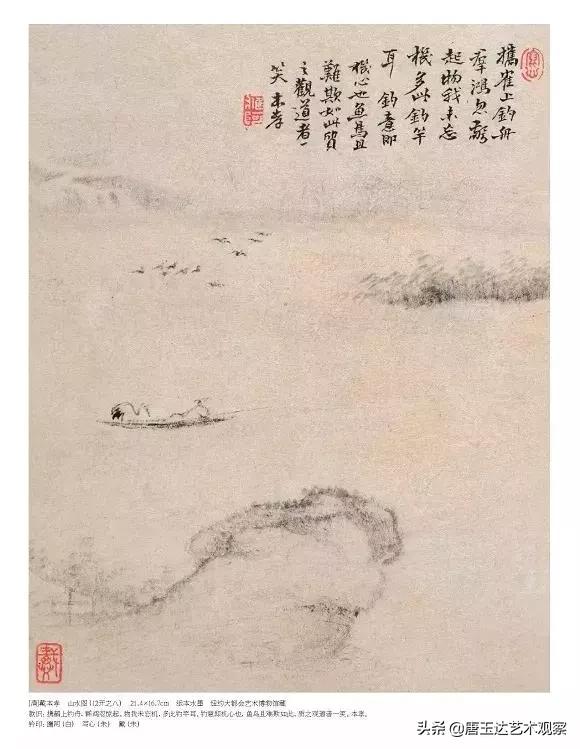 攜隺上釣舟
羣鴻忽驚
起物我未忘
機多此釣竿
耳 釣意即
機心也魚鳥且
難欺如此質
之觀道者一
笑 本孝
[清]戴本孝 山水图 (12开之八) 21.4×16.7cm 纸本水墨 纽约大都会艺术博物馆藏
款识：携鹤上钓舟，群鸿忽惊起。物我未忘机，多此钓竿耳。钓意即机心也，鱼鸟且难欺如此，质之观道者一笑。本孝。
钤印：鹰阿（白） 写心（朱） 戴（朱）
头条 @唐玉达艺术观察